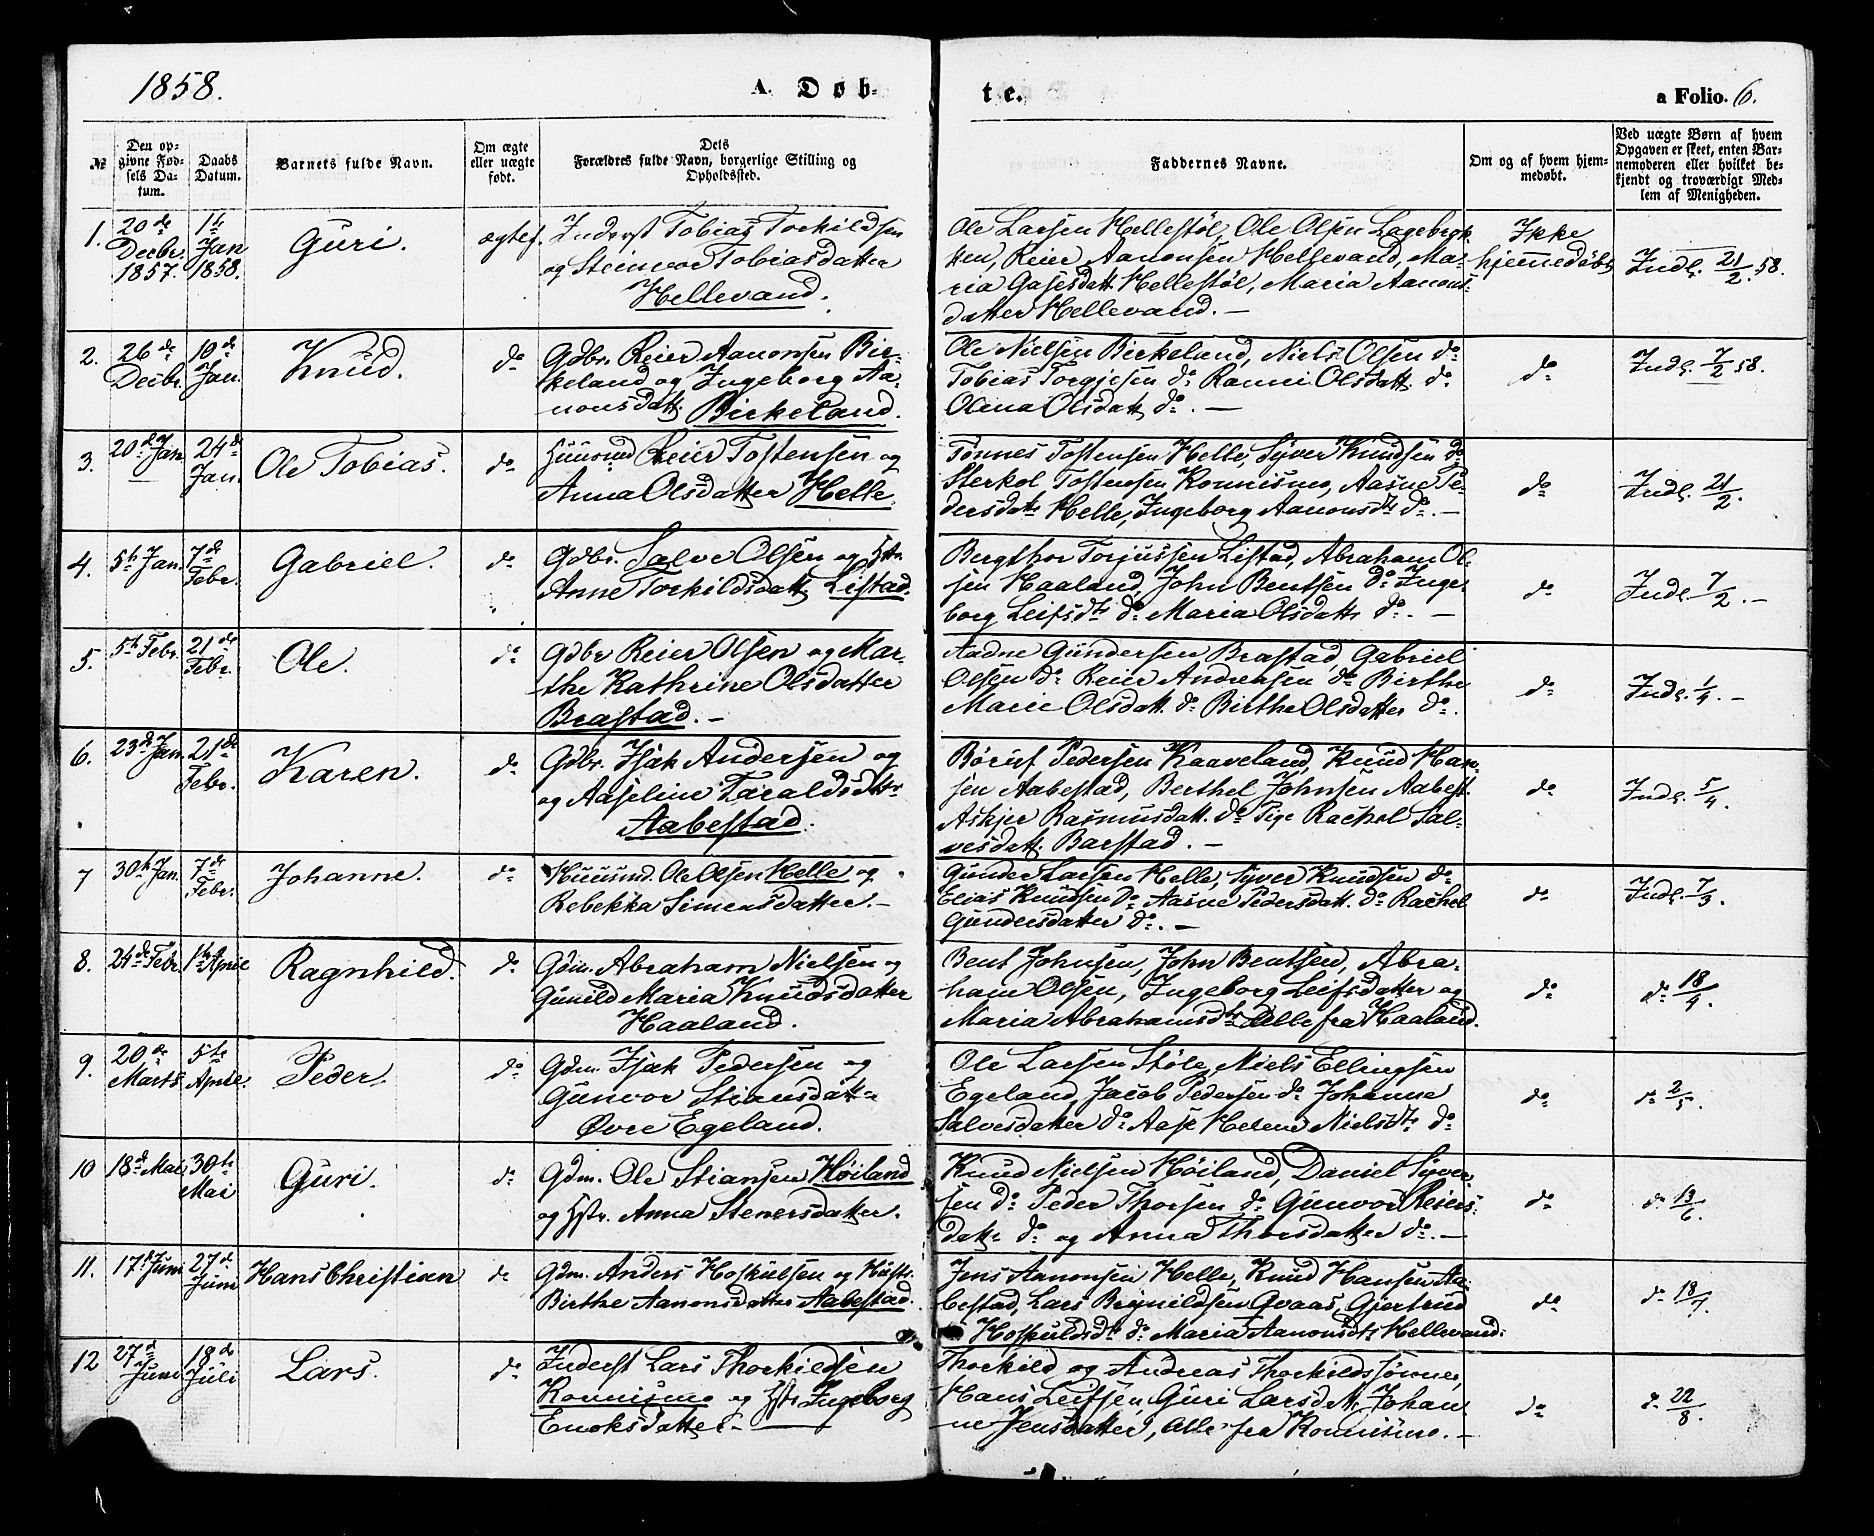 1858.
A. Døb-
te.
a Folio. 6.
№
Den op-
givne Fød-
sels Da-
tum.
Daabs
Datum.
Barnets fulde Navn.
Om ægte
eller uægte
født.
Dets
Forældres fulde Navn, borgerlige Stilling og
Opholdssted.
Faddernes Navne.
Om og af hvem hjem-
medøbt.
Ved uægte Børn af hvem
Opgaven er skeet, enten Bar-
nemoderen eller hvilket be-
kjendt og troværdigt Med-
lem af Menigheden.
1. 20de
Decbr.
1857.
1te
Jan
1858.
Guri.
ægtef.
Inderst Tobias Torkildsen
og Steinvor Tobiasdatter
Hellevand.
Ole Larsen Hellestøl, Ole Olsen Lagebergk-
ken, Reier Aanonsen Hellevand, Ma-
ria Gasesdatt. Hellestøl, Maria Aanons-
datter Hellevand. —
Ikke
hjemmedøbt
Indl. 21/2. 58.
2. 26de
Decbr.
10de
Jan.
Knud.
do
Gdbr. Reier Aanonsen Bir-
keland og Ingeborg Aa-
nonsdatt. Birkeland.
Ole Nielsen Birkeland, Niels Olsen do
Tobias Torgjesen do Ranni Olsdatt. do
Olena Olsdatt do. —
do
Indl. 7/2 58.
3. 20de Jan
24de
Jan.
Ole Tobias.
do
Huusmd Reier Tostensen og
Anna Olsdatter Helle.
Tønnes Tostensen Helle, Syver Knudsen do
Sterkol Tostensen Konnismo, Aasne Pe-
dersdatt. Helle, Ingeborg Aanonsdtr do. —
do
Indl. 21/2.
4. 5te Jan.
7de
Febr.
Gabriel.
do
Gdbr. Salve Olsen og Hstr.
Anne Torkildsdatt. Listad.
Bergthor Torjussen Listad, Abraham Ol-
sen Haaland, John Bentsen do Inge-
borg Leifsdtr do Maria Olsdattr do. —
do
Indl. 7/2. —
5. 5te Febr.
21de
Febr.
Ole.
do
Gdbr Reier Olsen og Mar-
the Kathrine Olsdatter
Brastad. —
Aadne Gundersen Brastad, Gabriel
Olsen do Reier Andreasen do Birthe
Marie Olsdatt. do Birthe Olsdatter do.
do
Indl. 1/4. —
6. 23de Jan.
21de
Febr.
Karen.
do
Gdbr. Isak Andersen og
og Aaseline Taraldsdtr
Aabestad.
Børuf Pedersen Kaaveland, Knud Han-
sen Aabestad, Berthel Johnsen Aabest.
Askjer Rasmusdatt. do Pige Rachel Sal-
vesdatt. Barstad. —
do
Indl. 5/4.
7 30te Jan.
7de
Febr.
Johanne.
do
Huusmd. Ole Olsen Helle og
Rebekka Simensdatter. —
Gunder Larsen Helle, Syver Knudsen do
Elias Knudsen do Aasne Pedersdatt. do Rachel
Gundersdatter do. —
do
Indl. 7/3.
8. 24de Febr
1te April
Ragnhild.
do
Gdm. Abraham Nielsen og
Gunild Maria Knudsdatter
Haaland.
Bent Johnsen, John Bentsen, Abra-
ham Olsen, Ingeborg Leifsdatter og
Maria Abrahamsdtr Alle fra Haaland.
do
do 18/4.
9. 20de
Marts
5te
April.
Peder.
do
Gdm. Isak Pedersen og
Gunvor Stiansdatt.
Øvre Egeland.
Ole Larsen Støle, Niels Ellingsen
Egeland, Jacob Pedersen do Johanne
Salvesdatter do Aase Helene Nielsdtr do
do
do 2/5.
10 18de Mai
30te
Mai
Guri.
do
Gdm. Ole Stiansen Høiland
og Hstr. Anna Stenersdatter.
Knud Nielsen Høiland, Daniel Syver-
sen do Peder Thorsen do Gunvor Reiers-
datt. do og Anna Thorsdatter do. —
do
do 13/6.
11. 17de Juni
27de
Juni
Hans Christian
do
Gdm. Anders Hoskulsen og Hustr.
Birthe Aanonsdatter Aabestad.
Jens Aanonsen Helle, Knud Hansen Aa-
bestad, Lars Brynildsen Qvaas, Gjertrud
Hoskuldsdtr do Maria Aanonsdtr Hellevand.
do
do 18/7.
12 27de
Juni
18de
Juli
Lars.
do
Inderst Lars Thorkildsen
Konnismo og Hstr. Ingeborg
Enoksdatter. —
Thorkild og Andreas Thorkildssønner,
Hans Leifsen, Guri Larsdtr, Johan-
ne Jensdatter, Alle fra Konnismo. —
do
do 22/8.